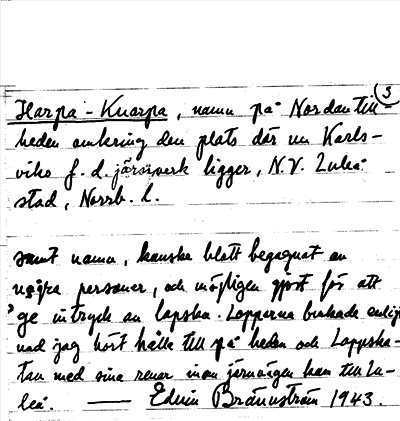 3
Harpa-Knarpa, namn på Nordantill-
heden omkring den plats där nu Karls-
viks f.d. järnverk ligger, N.V. Luleå
stad, Norrb. l.
samt namn, kanske blott begagnat av
några personer, och möjligen gjort för att
ge intryck av lapska. Lapparna brukade enligt
vad jag hört hålla till på heden och Lappska-
tan med sina renar innan järnvägen kom till Lu-
leå. — Edvin Brännström 1943.